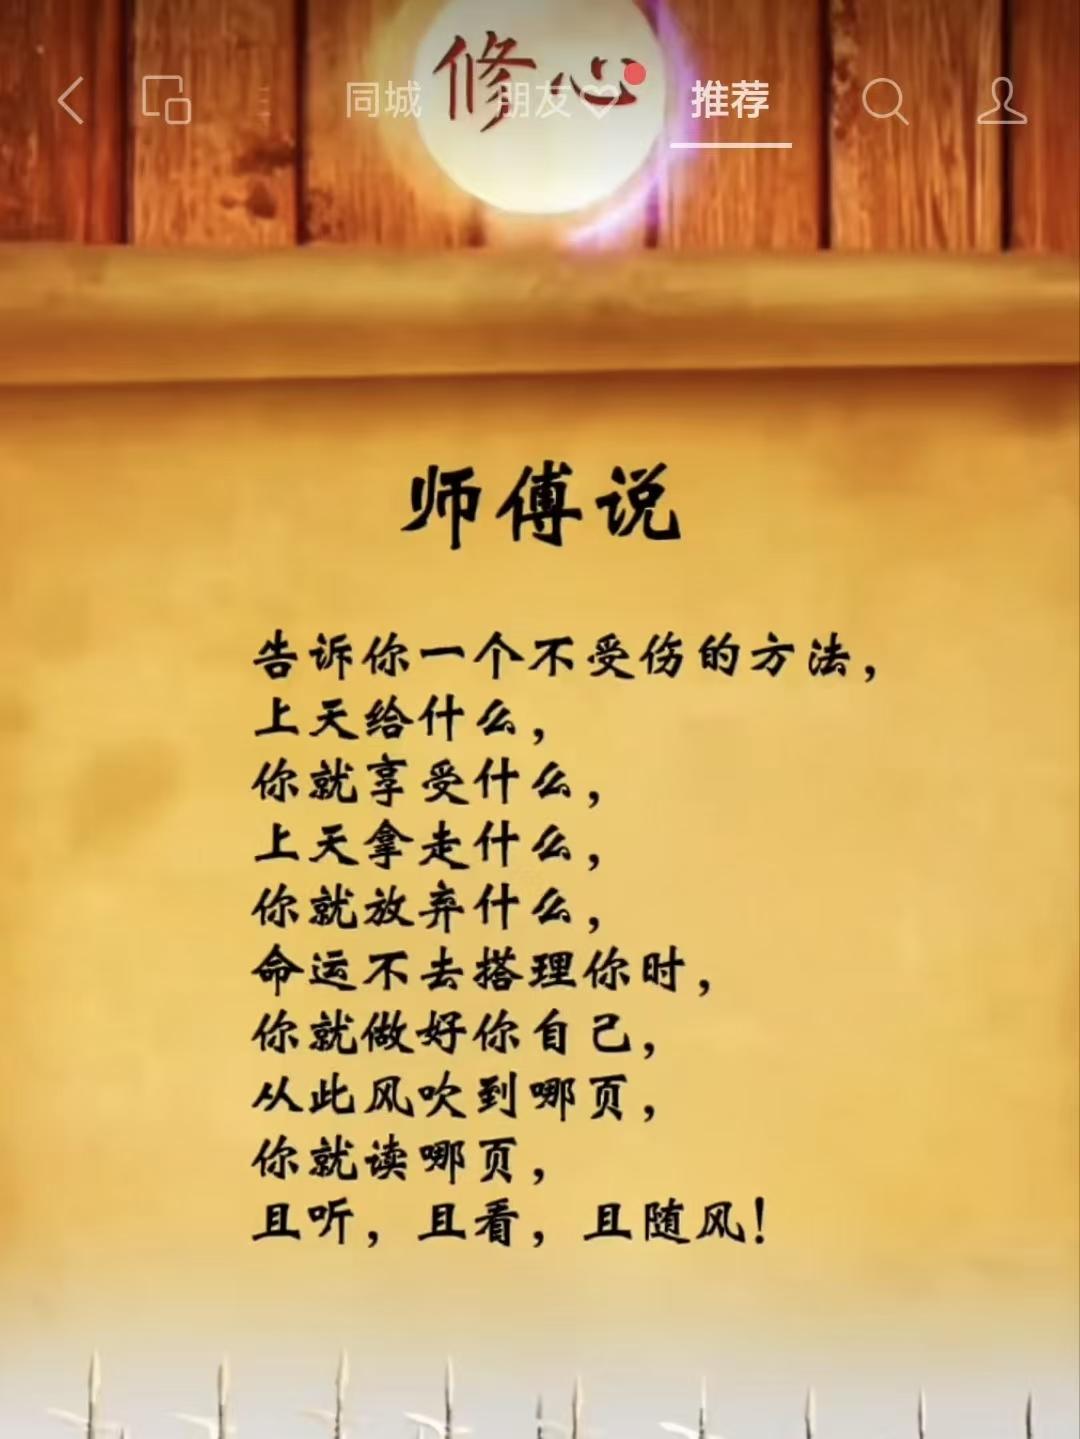 修心
同城 朋友 推荐
师傅说
告诉你一个不受伤的方法，
上天给什么，
你就享受什么，
上天拿走什么，
你就放弃什么，
命运不去搭理你时，
你就做好你自己，
从此风吹到哪页，
你就读哪页，
且听，且看，且随风！